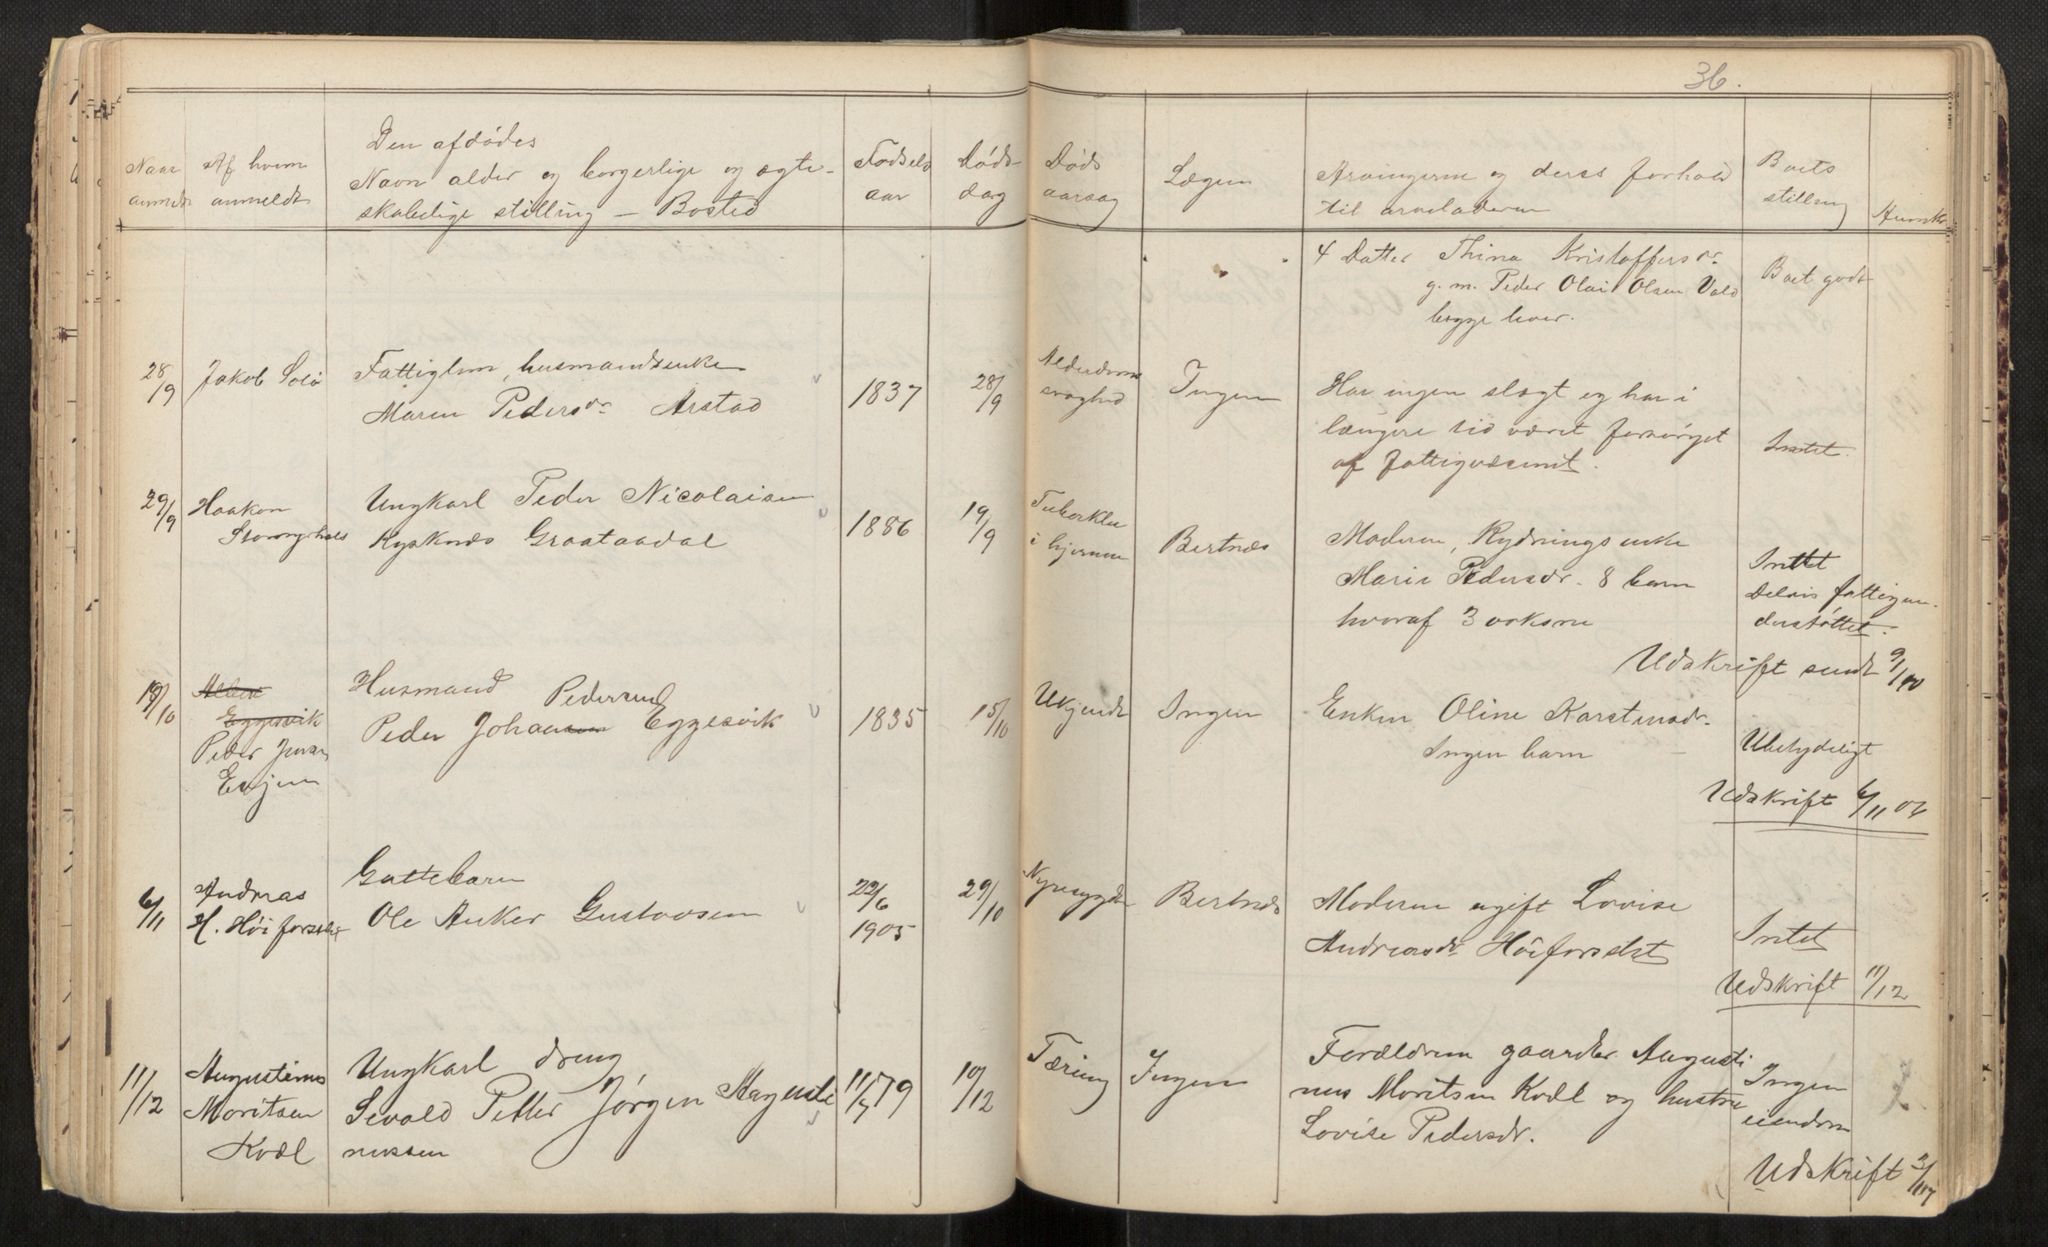 36.
Naar anmeldt
Af hvem anmeldt
Den afdødes
Navn alder og borgerlige og ægte-
skabelige stilling – Bosted
Fødsels
aar
Døds-
dag
Døds
aarsag
Lægen
Arvingerne og deres forhold
til arveladeren
Boets
stilling
Anmrk.
4 Datter Thina Kristoffersdr.
g. m. Peder Olai Olsen Vold
begge lever.
Boet godt
28/9
Jakob Solø
Fattiglem, husmandsenke
Maren Pedersdr Arstad
1837
28/9
Alderdoms
svaghed
Ingen
Har ingen slægt og har i
længere tid været forsørget
af fattigvæsenet.
Intet.
29/9
Haakon
Ungkarl Peder Nicolaisen
Kysknes Graataadal
1886
19/9
Tuberkler
i hjernen
Bertnæs
Moderen, Rydningsenke
Marie Pedersdr. 8 barn
hvoraf 3 voksne
Intet
Delvis fattigun-
derstøttet.
Udskrift sendt 9/10
19/10
Albert
Eggesvik
Peder Jensen
Evjen
Husmand
Pedersen
Peder Johansen Eggesvik
1835
15/10
Ukjendt
Ingen
Enken Oline Karstensdr.
Ingen barn
Ubetydeligt
Udskrift 6/11 06
6/11
Andreas
H. Høiforsslet
Guttebarn
Ole Anker Gustavsen
22/6
1905
29/10
Nyresygdom
Bertnæs
Moderen ugift Lovise
Andreasdr Høiforslet
Intet
Udskrift 11/12
11/12
Augustinus
Moritsen
Kvæl
Ungkarl dreng
Sevald Petter Jørgen Augusti
nussen
11/7 79
10/12
Tæring
Ingen
Forældrene gaardbr. Augusti
nus Moritsen Kvæl og hustru
Lovise Pedersdr.
Ingen
eiendom
Udskrift 2/1 07